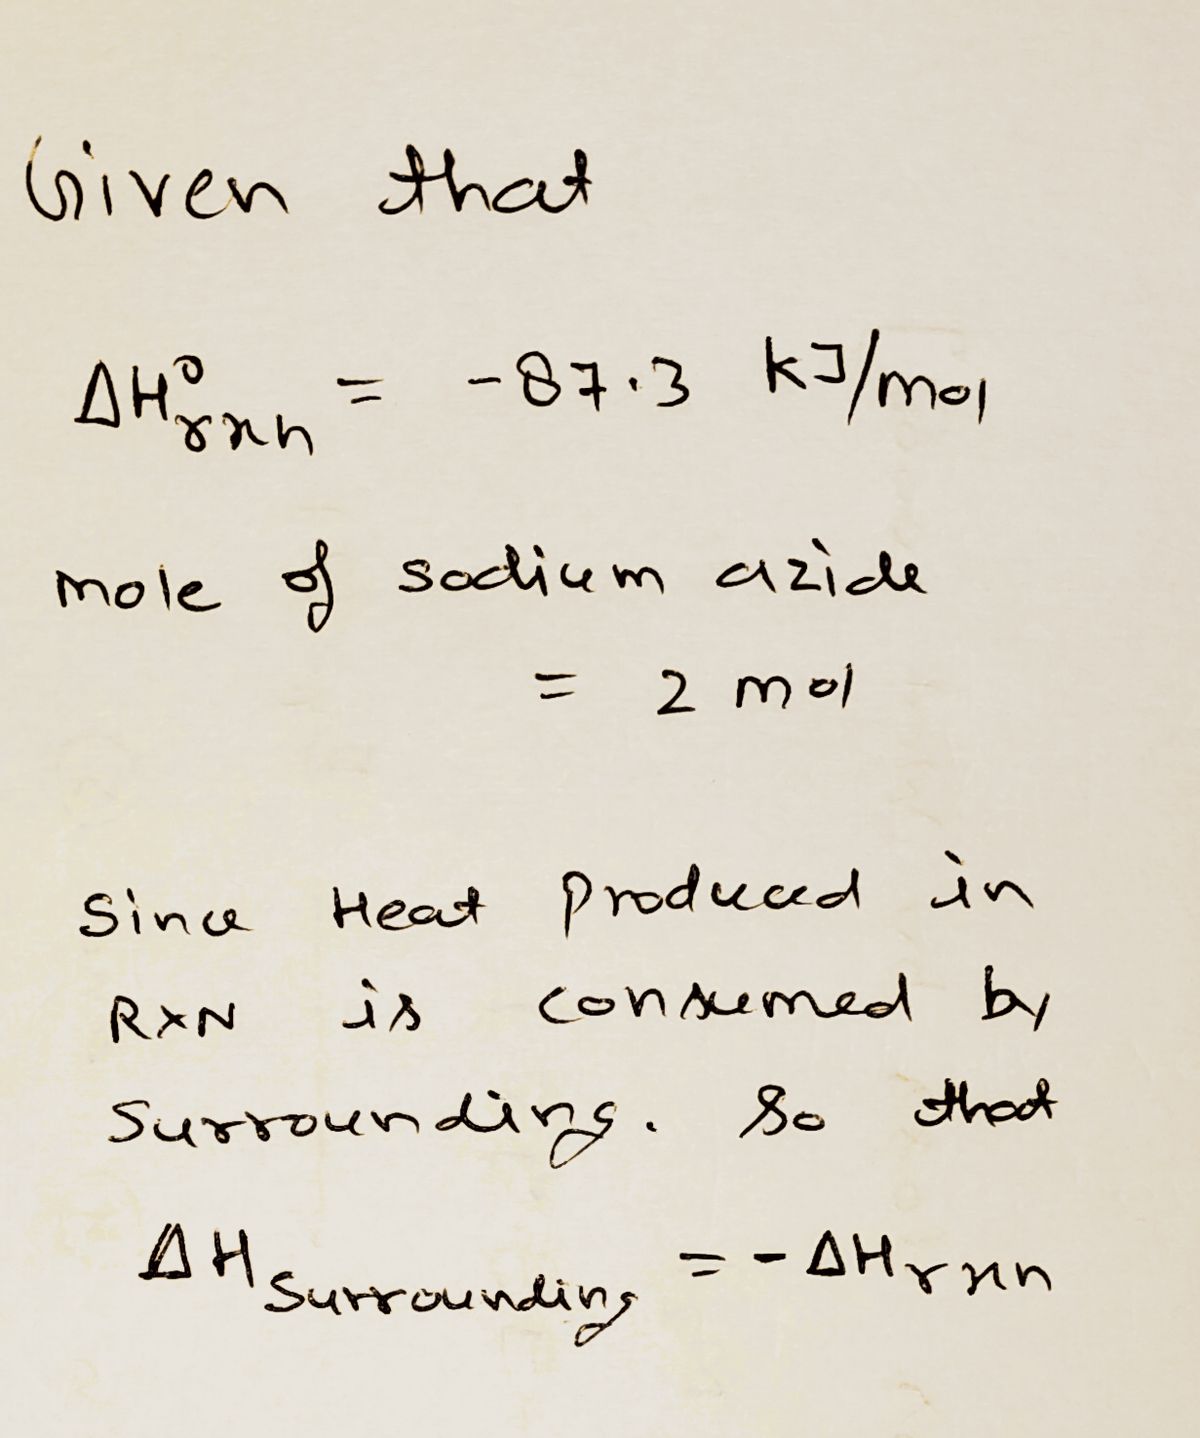 Given that
ΔH°rxn = -87.3 kJ/mol
mole of sodium azide
= 2 mol
Since Heat produced in
RXN is consumed by
Surrounding. So that
ΔH Surrounding = - ΔHrxn